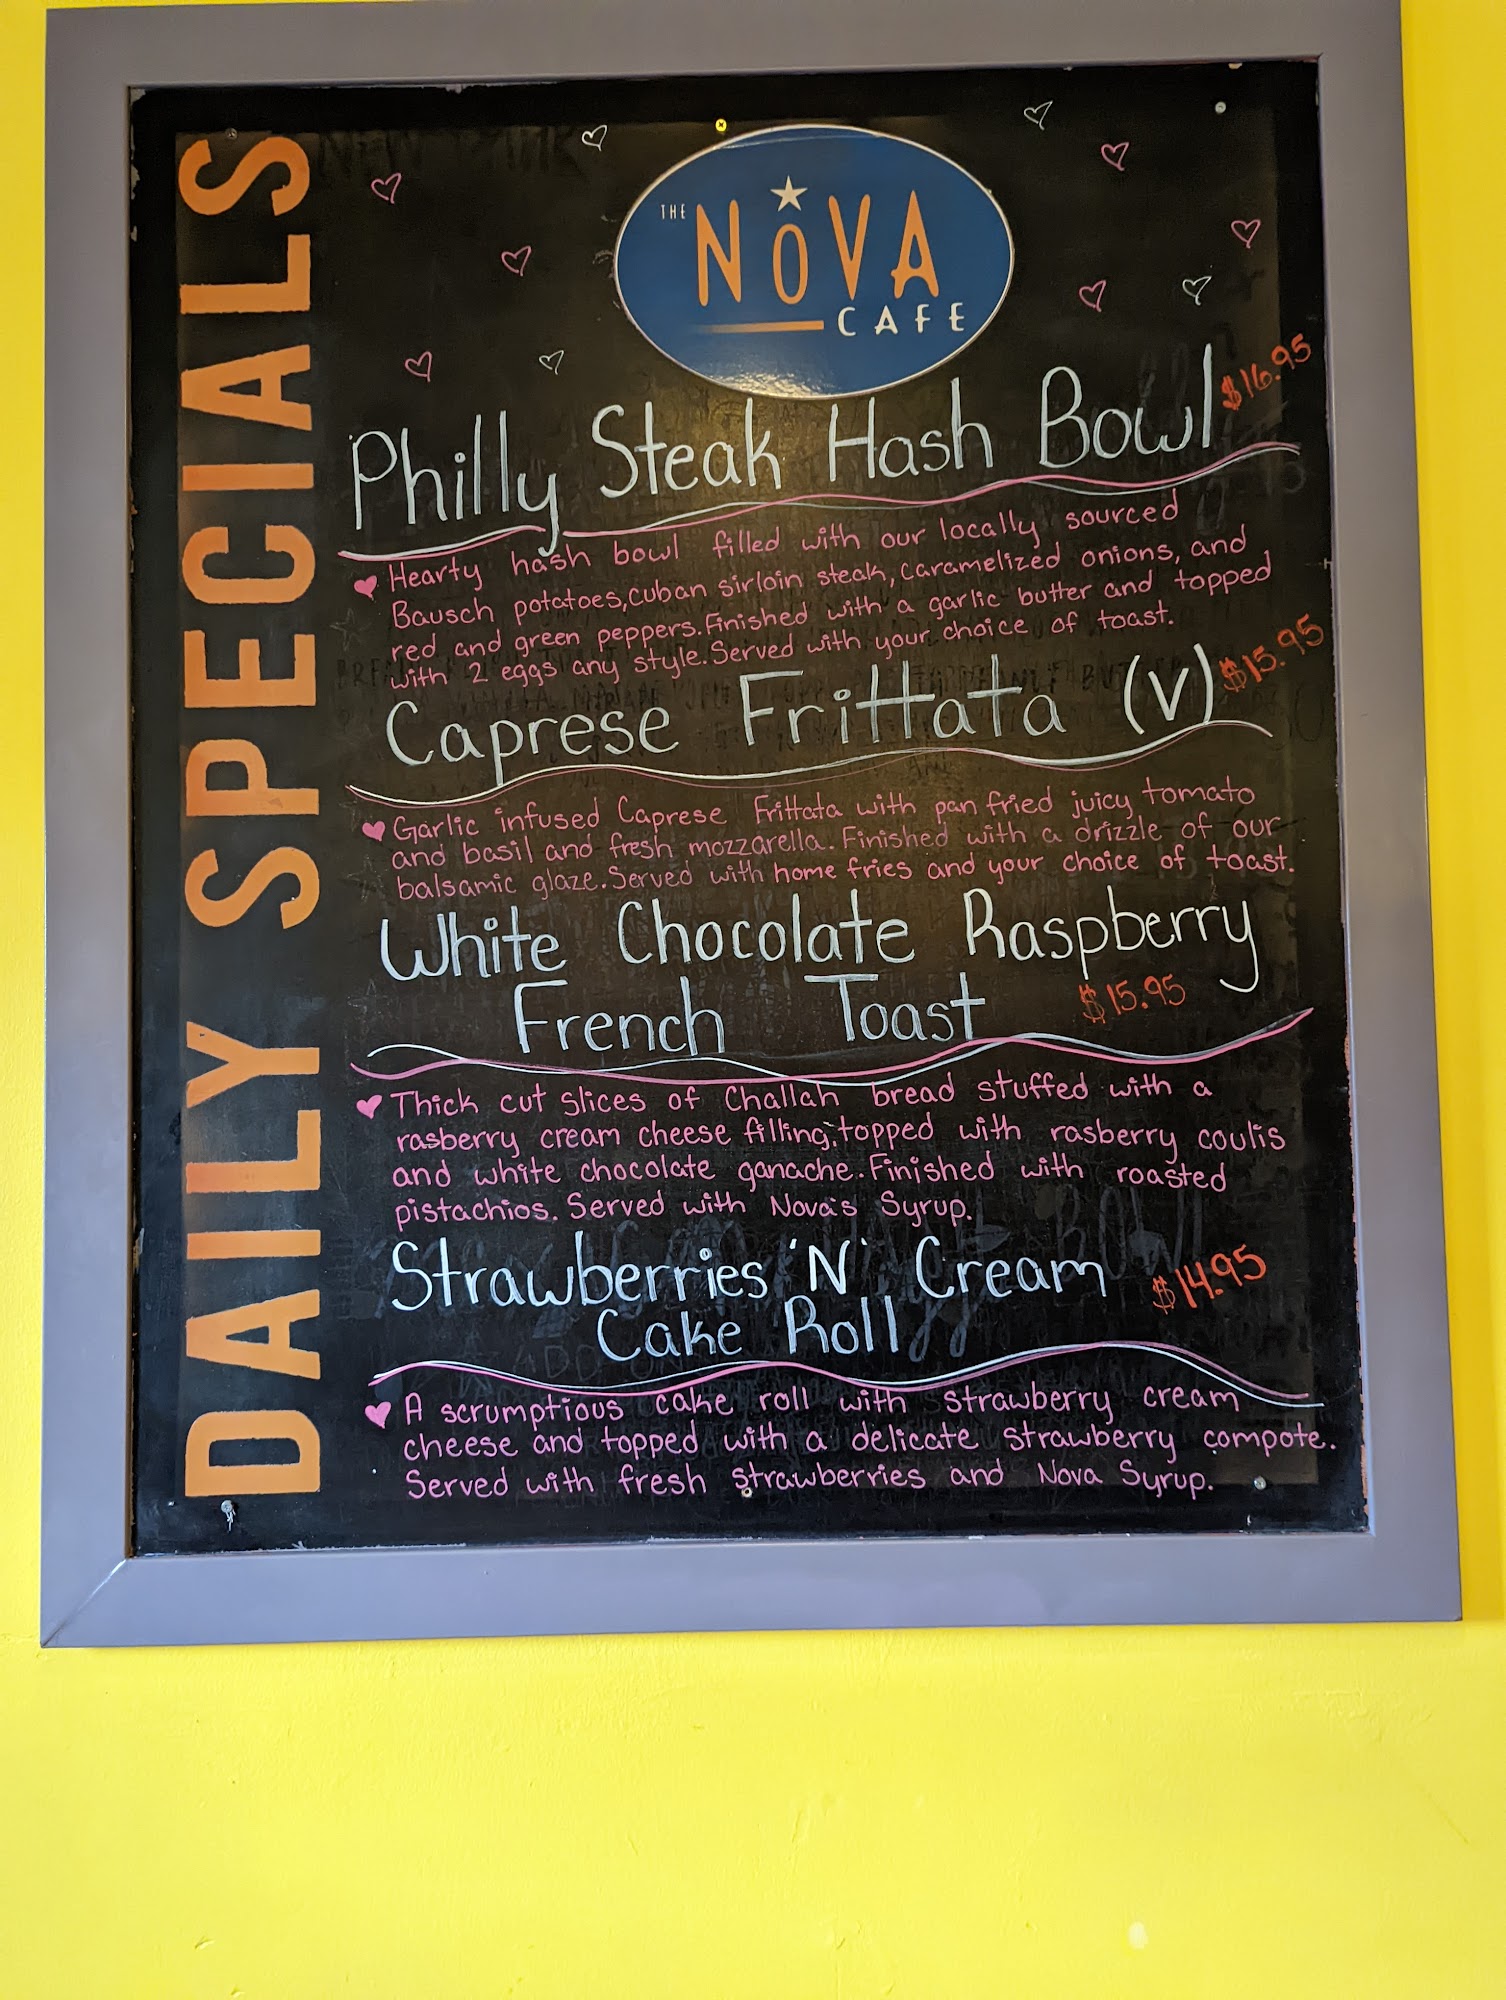 DAILY SPECIALS
THE NOVA
CAFE
Philly Steak Hash Bowl $16.95
Hearty hash bowl filled with our locally sourced
Bausch potatoes, cuban sirloin steak, caramelized onions, and
red and green peppers. Finished with a garlic butter and topped
with 2 eggs any style. Served with your choice of toast.
Caprese Frittata (V) $15.95
Garlic infused Caprese Frittata with pan fried juicy tomato
and basil and fresh mozzarella. Finished with a drizzle of our
balsamic glaze. Served with home fries and your choice of toast.
White Chocolate Raspberry
French Toast $15.95
Thick cut slices of Challah bread stuffed with a
rasberry cream cheese filling, topped with rasberry coulis
and white chocolate ganache. Finished with roasted
pistachios. Served with Nova's Syrup.
Strawberries 'N' Cream $14.95
Cake Roll
A scrumptious cake roll with strawberry cream
cheese and topped with a delicate strawberry compote.
Served with fresh strawberries and Nova Syrup.